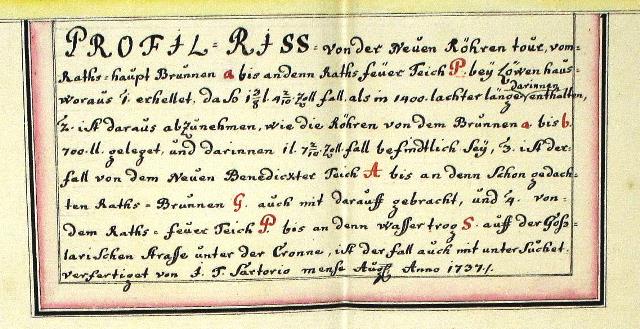 PROFIL-RISS. von der Neuen Röhren tour, vom-
Raths-haupt Brunnen a bis an denn Raths feüer Teich P. beÿ Löwenhaus-
woraus 1. erhellet, da so 1 3/8 l. 4 2/10 Zoll fall. als in 1400. lachter länge darinnen enthalten,
2. ist daraus abzunehmen, wie die Röhren von dem Brunnen a bis b.
700. ll. geleget, und darinnen 1 l. 7 2/10 Zoll fall befindtlich seÿ, 3. ist der-
fall von dem Neuen Benedickter Teich A bis an denn Schon gedach-
ten Raths-Brunnen G. auch mit darauff gebracht, und 4. von-
dem Raths-feüer Teich P bis an denn Wasser trog S. auff der Goß-
larischen Strasse unter der Cronne, ist der fall auch mit untersuchet.
verfertiget von J. T. Sartorio mense Augs Anno 1737.